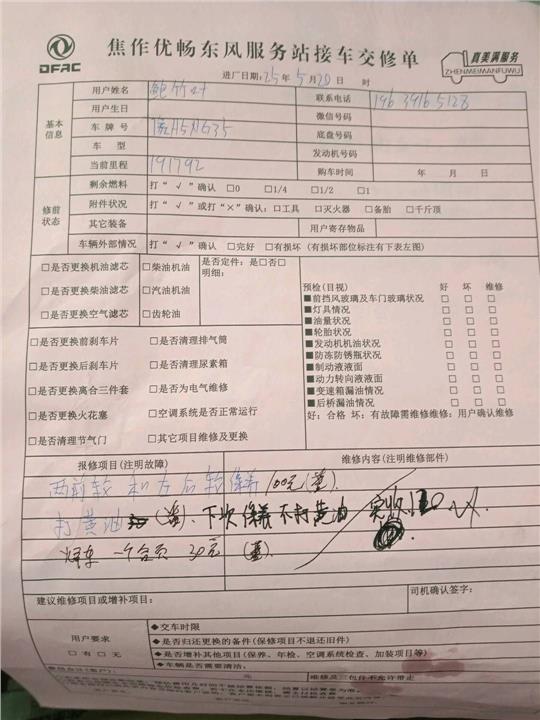 DFAC
焦作优畅东风服务站接车交修单
真美满服务
ZHENMEIMANFUWU
进厂日期：25年 5月20日 时
基本信息
用户姓名 鲍竹叶 联系电话 196 3916 5128
用户生日 微信号码
车牌号 豫H5NG35 底盘号码
车型 发动机号码
当前里程 191792 购车时间 年 月 日
修前状态
剩余燃料 打“√”确认 □0 □1/4 □1/2 □1
附件状况 打“√”或打“×”确认：□工具 □灭火器 □备胎 □千斤顶
其它装备 用户寄存物品
车辆外部情况 打“√”确认 □完好 □有损坏（有损坏部位标注有下表左图）
□是否更换机油滤芯 □柴油机油 是否定件：是□否□
明细：
□是否更换柴油滤芯 □汽油机油
□是否更换空气滤芯 □齿轮油
预检(目视) 好 坏 维修
■前挡风玻璃及车门玻璃状况 □ □ □
■灯具情况 □ □ □
■油量状况 □ □ □
■轮胎状况 □ □ □
■发动机机油状况 □ □ □
■防冻防锈瓶状况 □ □ □
■制动液液面 □ □ □
■动力转向液液面 □ □ □
■变速箱漏油情况 □ □ □
■后桥漏油情况 □ □ □
好：合格 坏：有故障需维修维修：用户确认维修
□是否更换前刹车片 □是否清理排气筒
□是否更换后刹车片 □是否清理尿素箱
□是否更换离合三件套 □是否为电气维修
□是否更换火花塞 □空调系统是否正常运行
□是否清理节气门 □其它项目维修及更换
报修项目(注明故障) 维修内容(注明维修部件)
两前轮 和左后轮保养 100元
打黄油 下次保养不打黄油 实收
焊车 一个合页 30元
建议维修项目或增补项目： 司机确认签字：
用户要求
□有 □无
◆交车时限
◆是否归还更换的备件(保修项目不退还旧件)
◆是否增补其他项目(保养、年检、空调系统检查、加装项目等)
◆车辆是否需要清洁：
元 维修及三包件不允许带走